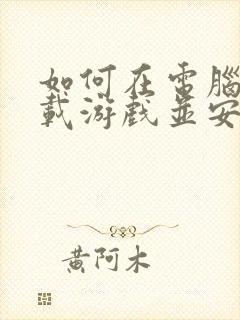 如何在電腦
載游戲並安
黃阿木